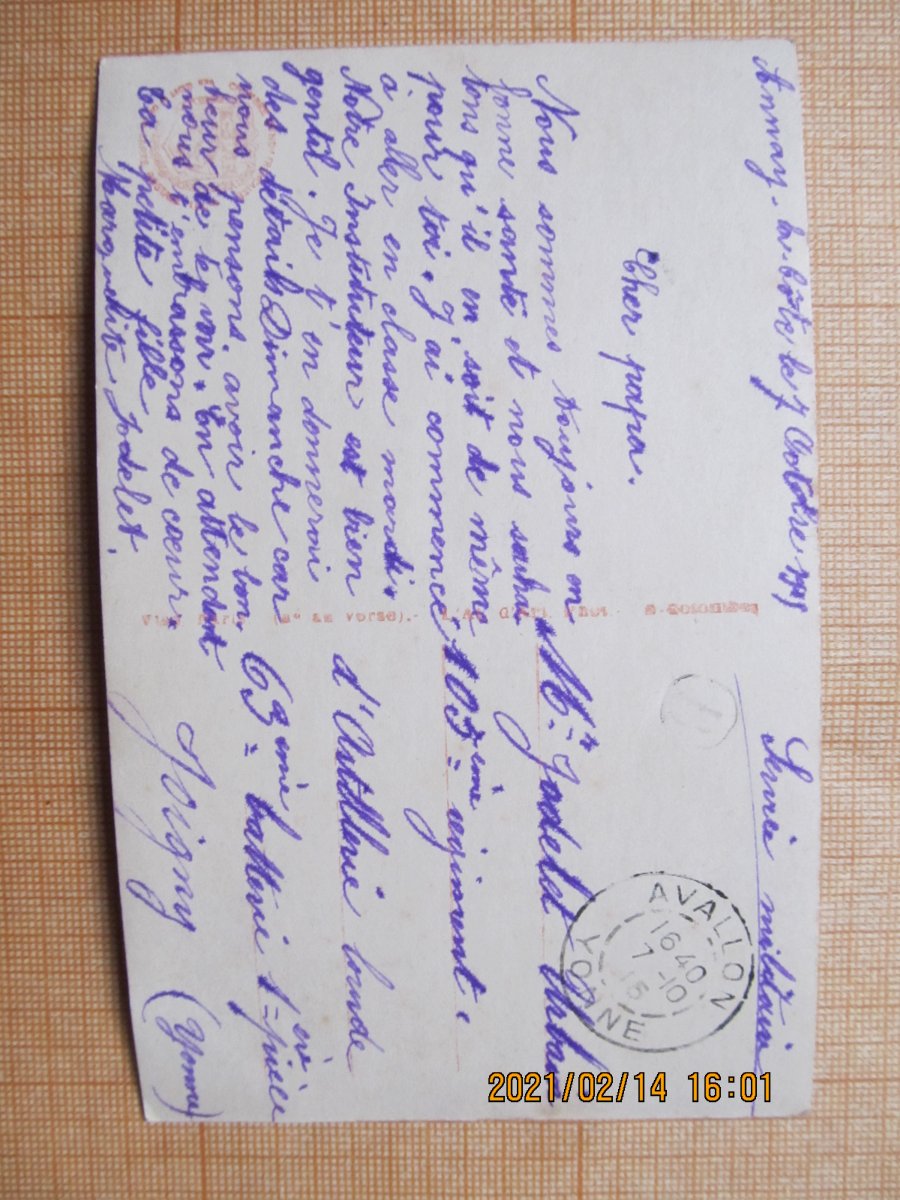 Annay-la-Côte le 7 Octobre
Cher papa.
Nous sommes toujours en
bonne santé et nous souhai
tons qu'il en soit de même
pour toi. J'ai commencé
a aller en classe mardi.
Notre Instituteur est bien
gentil. Je t'en donnerai
des détails Dimanche car
nous pensons avoir le bon
heur de te voir. En attendant
nous t'embrassons de cœur.
ta petite fille
Marguerite Jodelet.
Service militaire
AVALLON
16·40
7-10
15
YONNE
Mr Jodelet Urbain
105ème régiment
d'Artillerie lourde
63ème batterie 1ère pièce
Joigny (Yonne)
2021/02/14 16:01